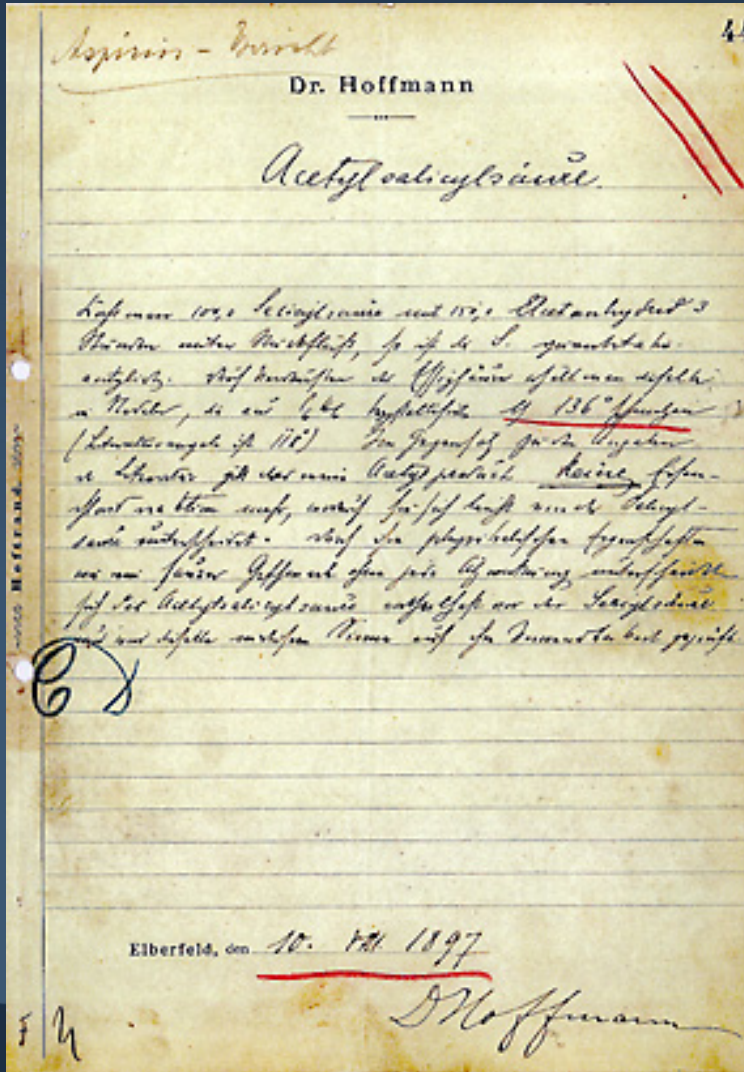 44
Dr. Hoffmann
Acetylsalicylsäure.
100,0 Salicylsäure mit 150,0 Acetanhydrid 3
Stunden unter Rückfluß, so ist die S. quantitativ
der Essigsäure erhält man dieselbe
in Nadeln, die aus 136° schmelzen
(Literaturangabe ist 118°) Im Gegensatz zu den Angaben
der Literatur gibt das reine Acetylprodukt keine Eisen-
mehr, wodurch sie sich leicht von der Salicyl-
säure unterscheidet. Durch ihre physikalischen Eigenschaften
wie ein saurer Geschmack ohne jede Ätzwirkung unterscheidet
sich die Acetylsalicylsäure vorteilhaft von der Salicylsäure
und wird dieselbe in diesem Sinne auf ihre geprüft
Elberfeld, den 10. VIII 1897
DHoffmann